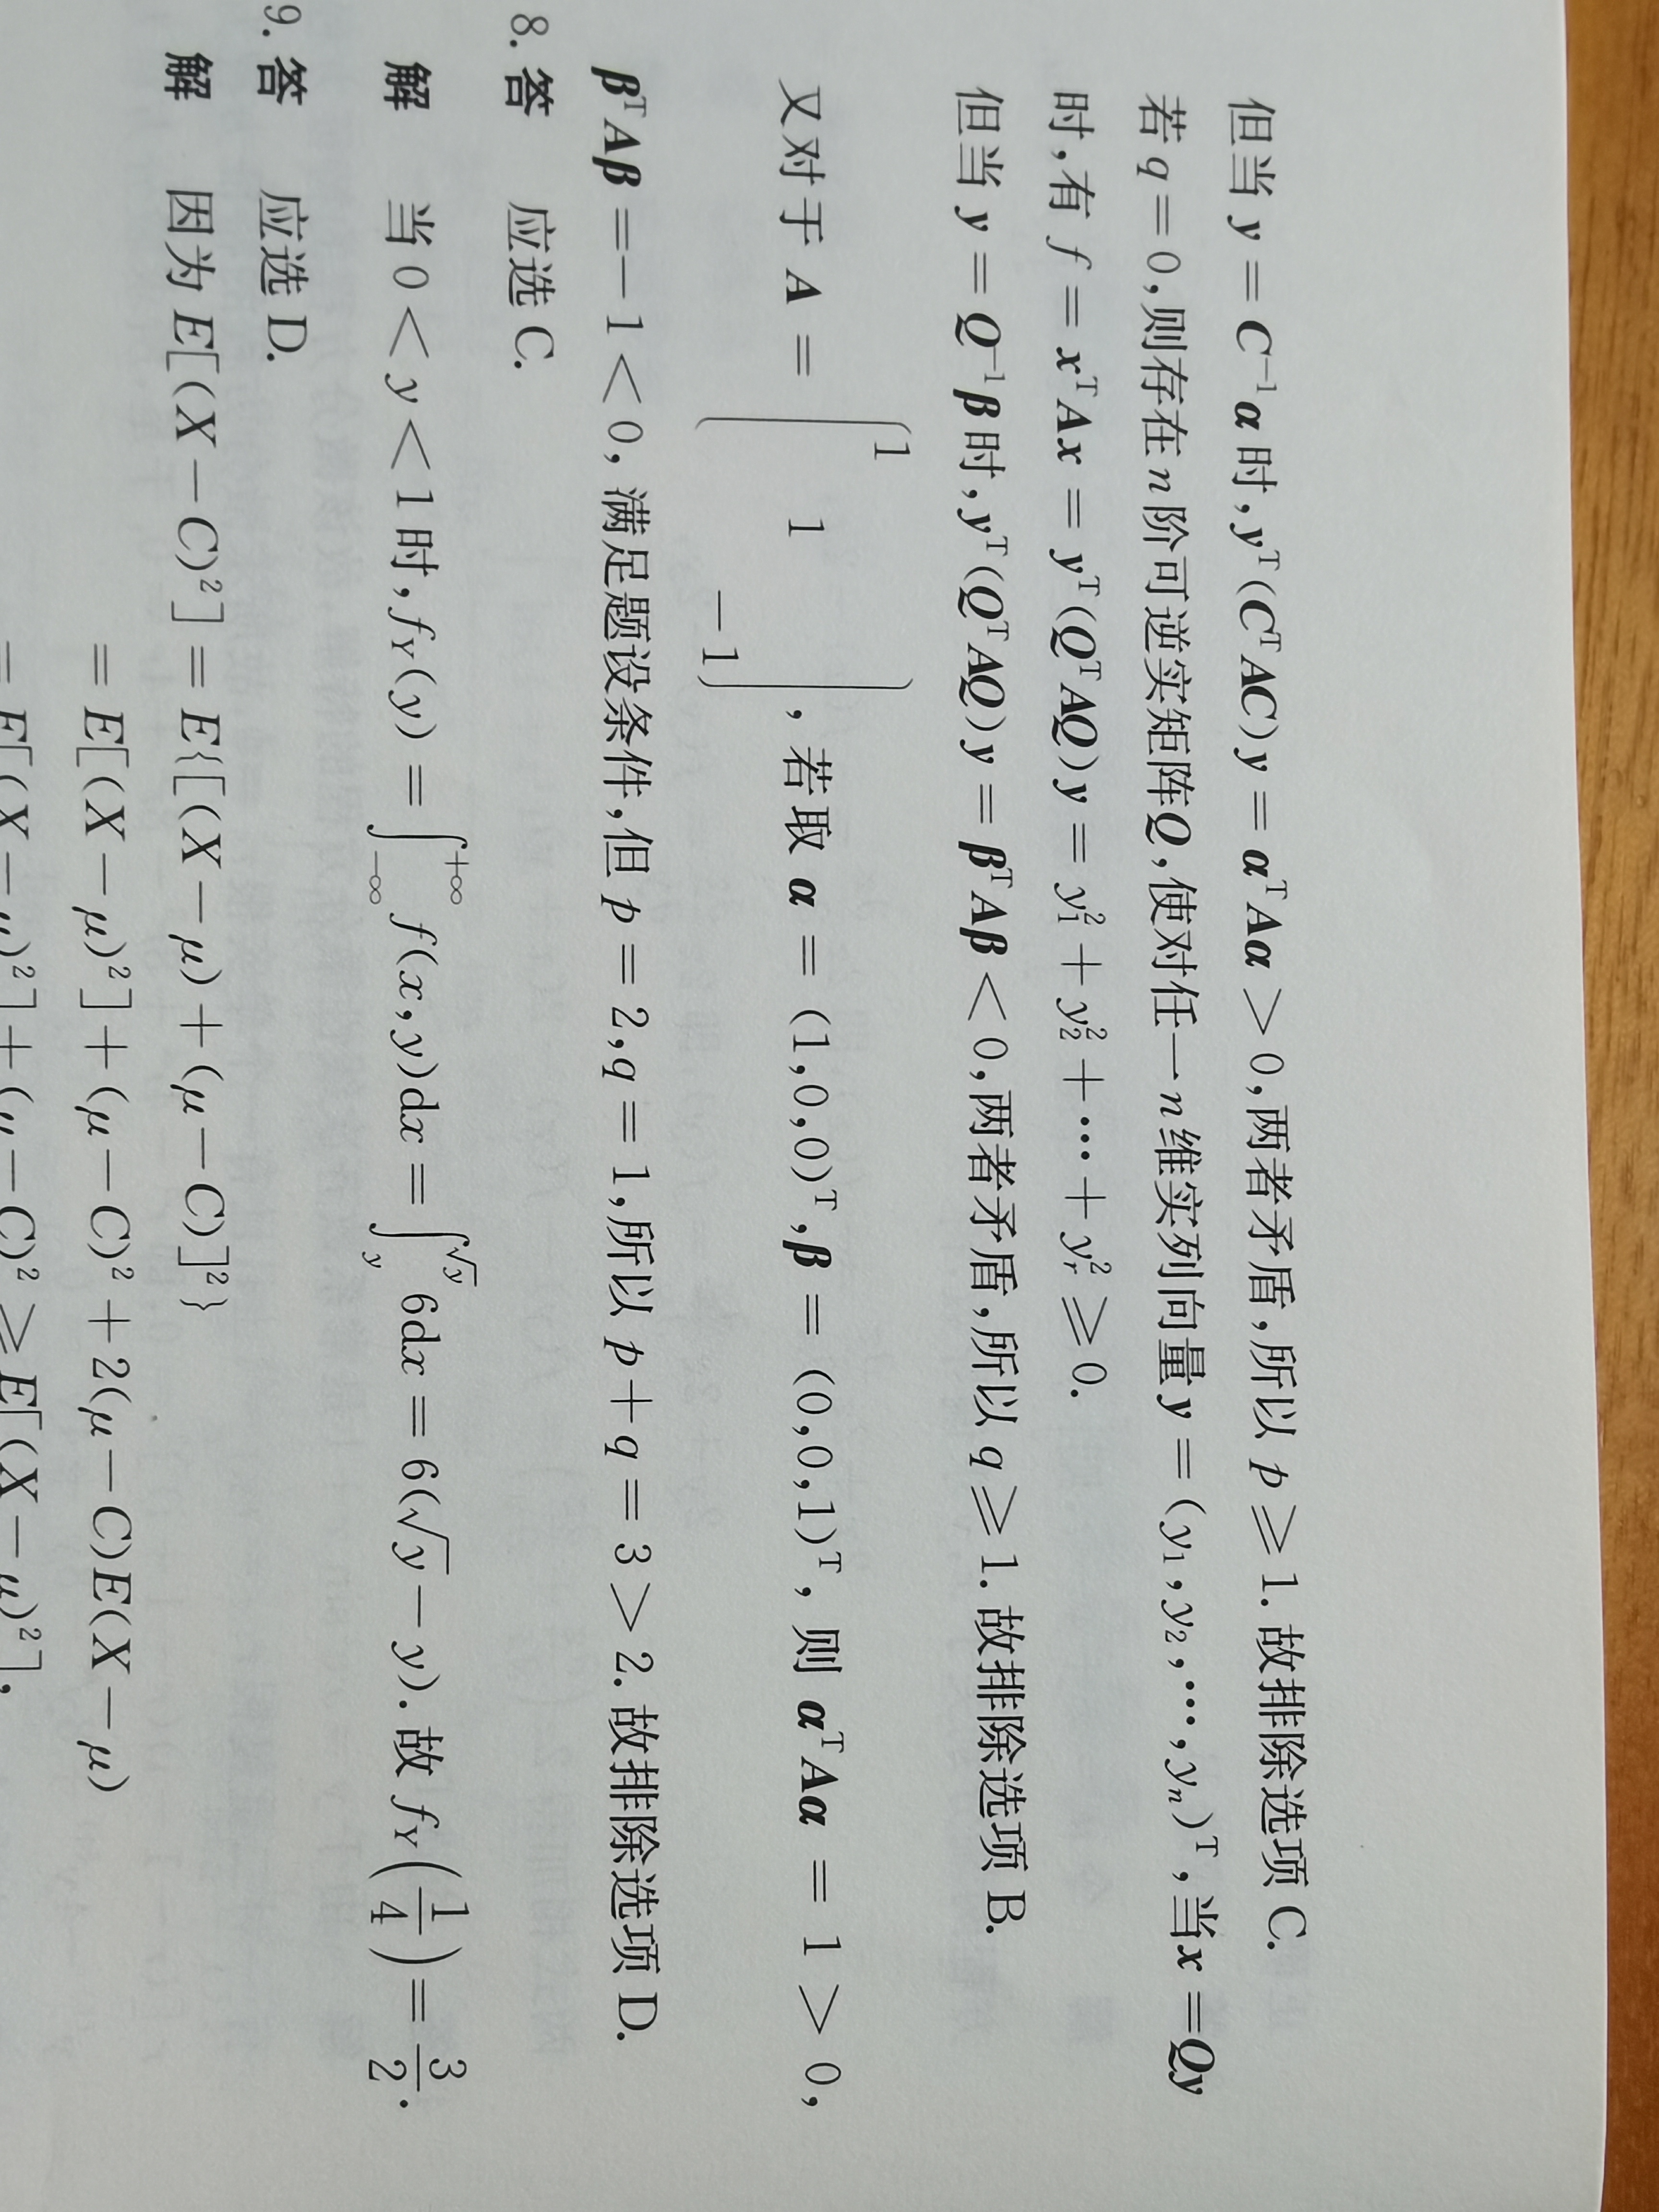 但当 y = C⁻¹α 时, yᵀ(CᵀAC)y = αᵀAα > 0, 两者矛盾, 所以 p ⩾ 1. 故排除选项 C.
若 q = 0, 则存在 n 阶可逆实矩阵 Q, 使对任一 n 维实列向量 y = (y₁, y₂, ⋯, yₙ)ᵀ, 当 x = Qy
时, 有 f = xᵀAx = yᵀ(QᵀAQ)y = y₁² + y₂² + ⋯ + yᵣ² ⩾ 0.
但当 y = Q⁻¹β 时, yᵀ(QᵀAQ)y = βᵀAβ < 0, 两者矛盾, 所以 q ⩾ 1. 故排除选项 B.
又对于 A = (1 1 −1), 若取 α = (1,0,0)ᵀ, β = (0,0,1)ᵀ, 则 αᵀAα = 1 > 0,
βᵀAβ = −1 < 0, 满足题设条件, 但 p = 2, q = 1, 所以 p + q = 3 > 2. 故排除选项 D.
8. 答 应选 C.
解 当 0 < y < 1 时, f_Y(y) = ∫_{−∞}^{+∞} f(x,y)dx = ∫_y^{√y} 6dx = 6(√y − y). 故 f_Y(1/4) = 3/2.
9. 答 应选 D.
解 因为 E[(X − C)²] = E{[(X − μ) + (μ − C)]²}
= E[(X − μ)²] + (μ − C)² + 2(μ − C)E(X − μ)
= E[(X − μ)²] + (μ − C)² ⩾ E[(X − μ)²],